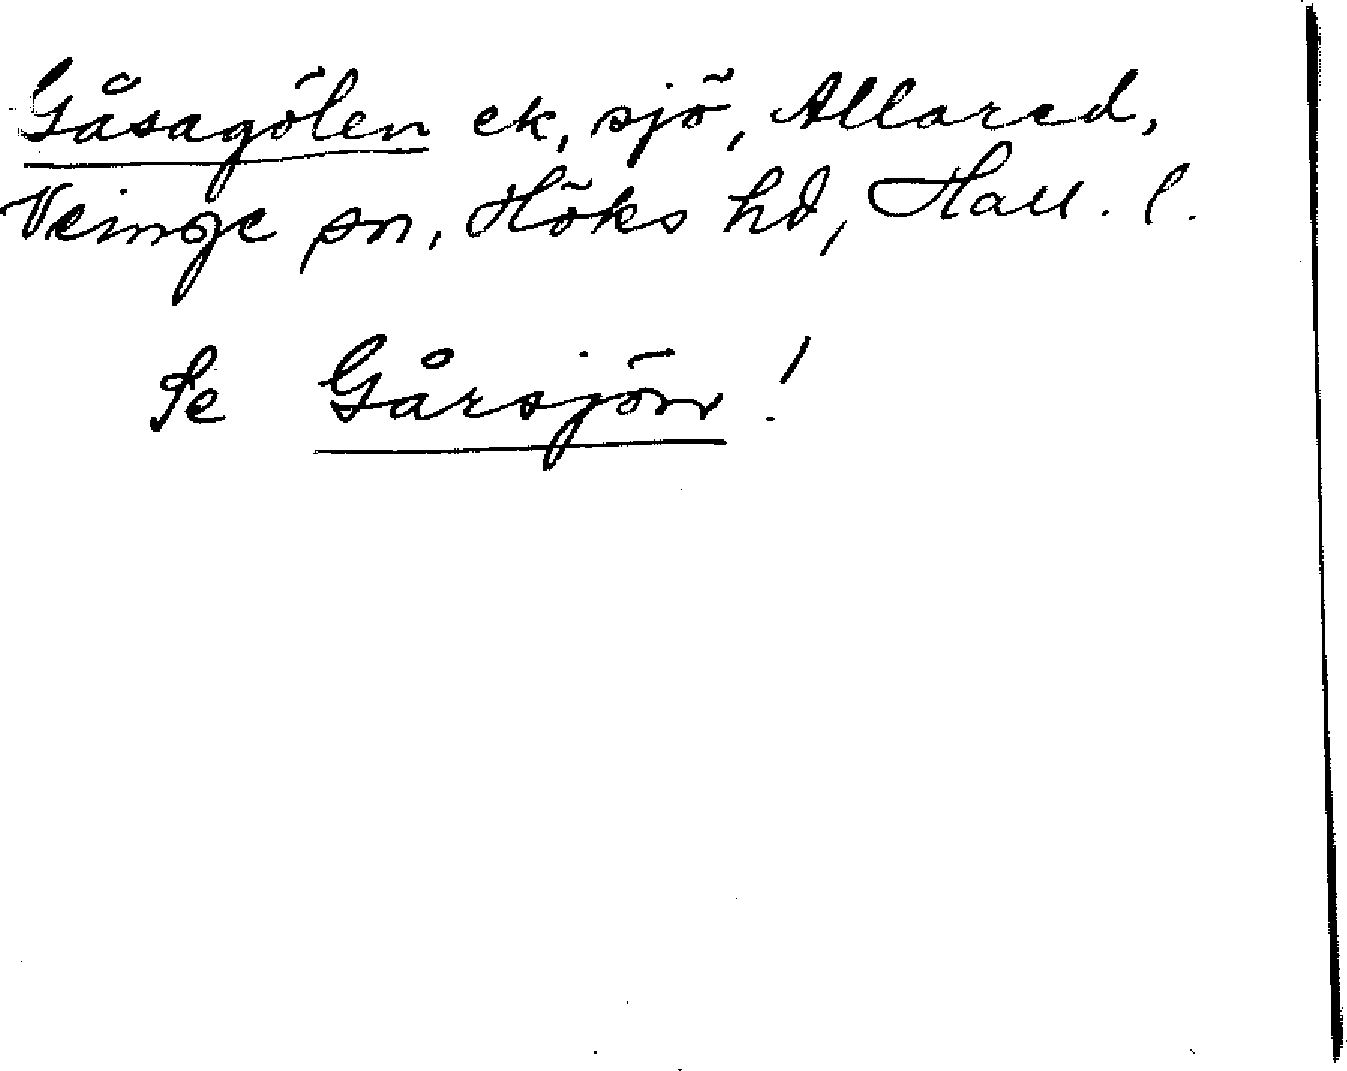 Gåsagölen ek, sjö, Allared,
Veinge sn, Höks hd, Hall. l.
Se Gårsjön!